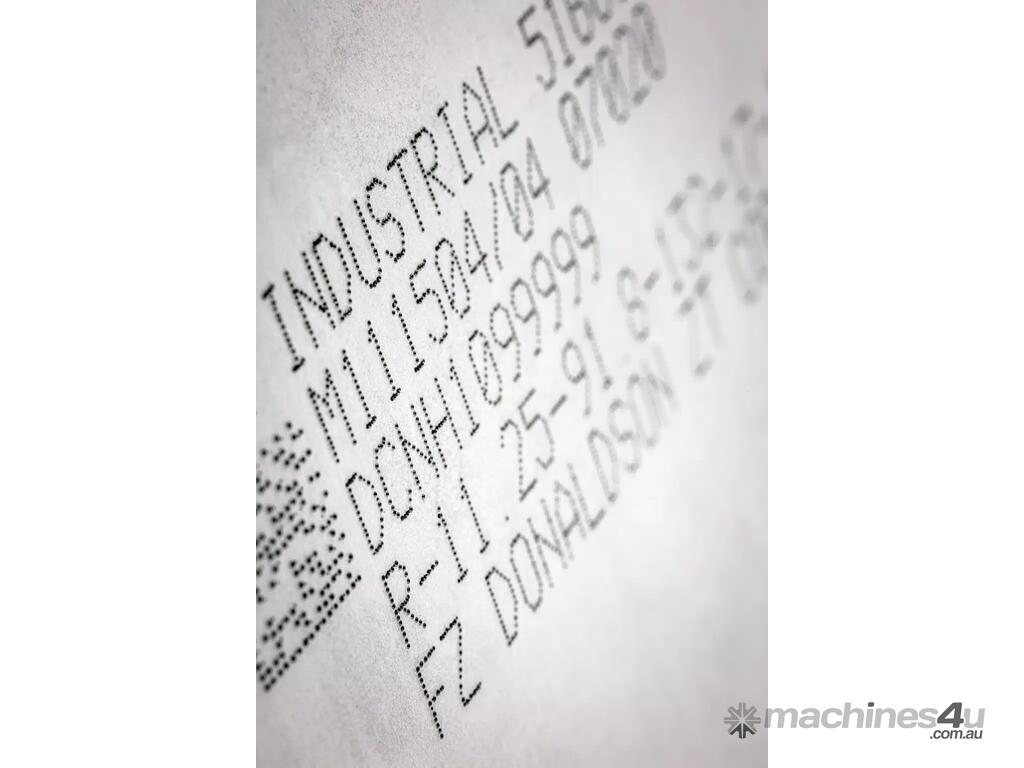 INDUSTRIAL
M111504/04 07020
DCNH1099999
R-11.25-91
FZ DONALDSON ZT
machines4u
.com.au